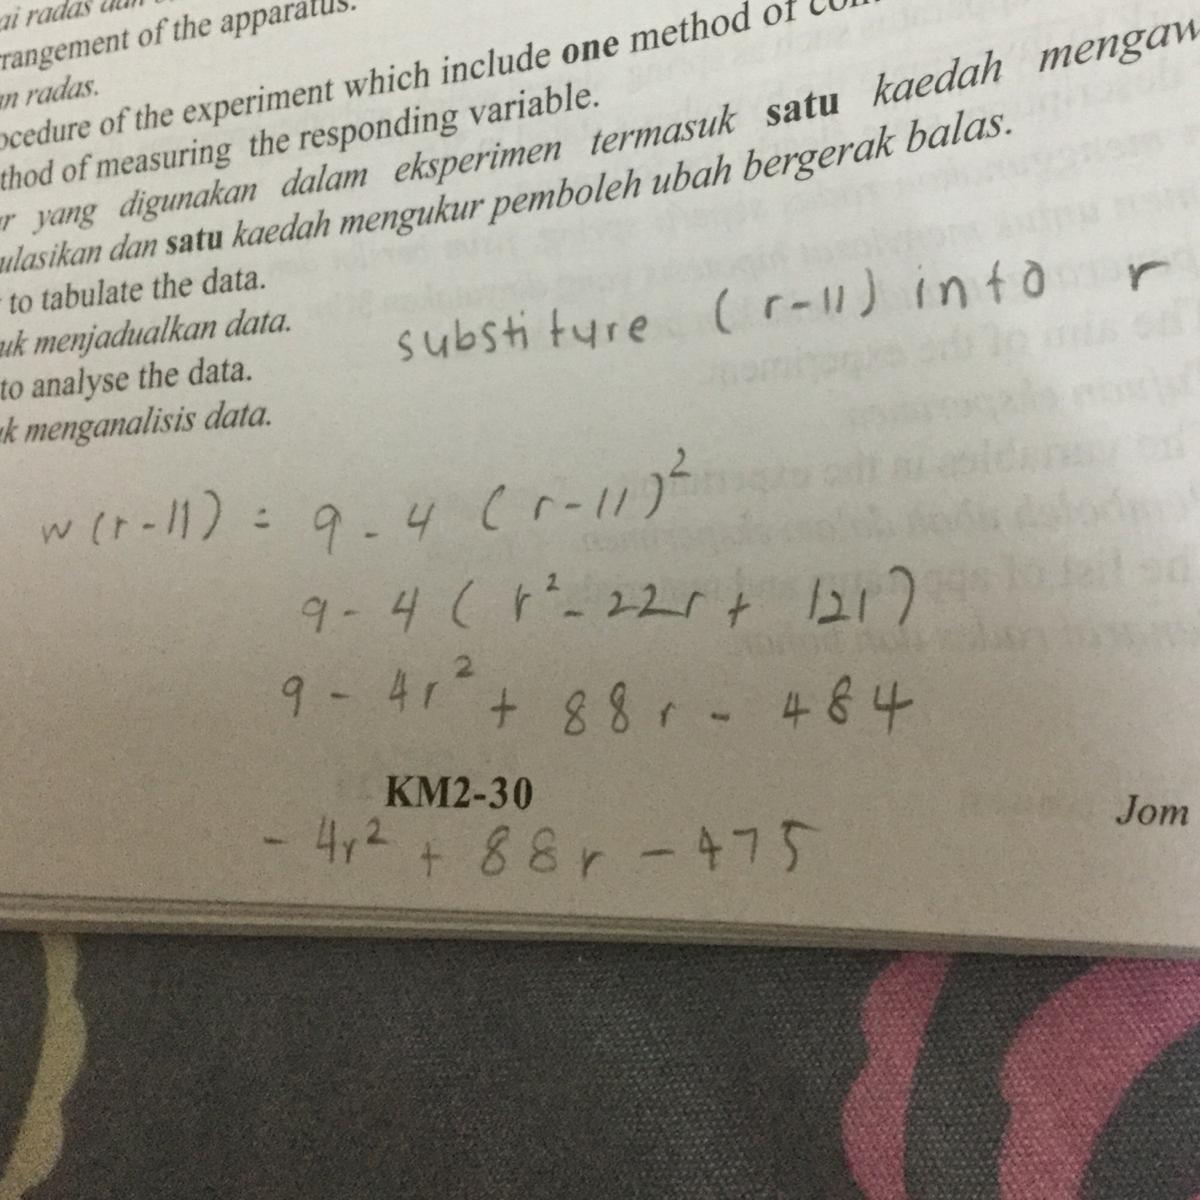 ai radas dan
rangement of the apparatus.
n radas.
ocedure of the experiment which include one method of con
thod of measuring the responding variable.
r yang digunakan dalam eksperimen termasuk satu kaedah mengaw
ulasikan dan satu kaedah mengukur pemboleh ubah bergerak balas.
to tabulate the data.
uk menjadualkan data.
to analyse the data.
k menganalisis data.
substiture (r-11) into r
w(r-11) = 9 - 4 (r-11)²
9 - 4 ( r² - 22r + 121)
9 - 4r² + 88r - 484
KM2-30
Jom
- 4r² + 88r - 475